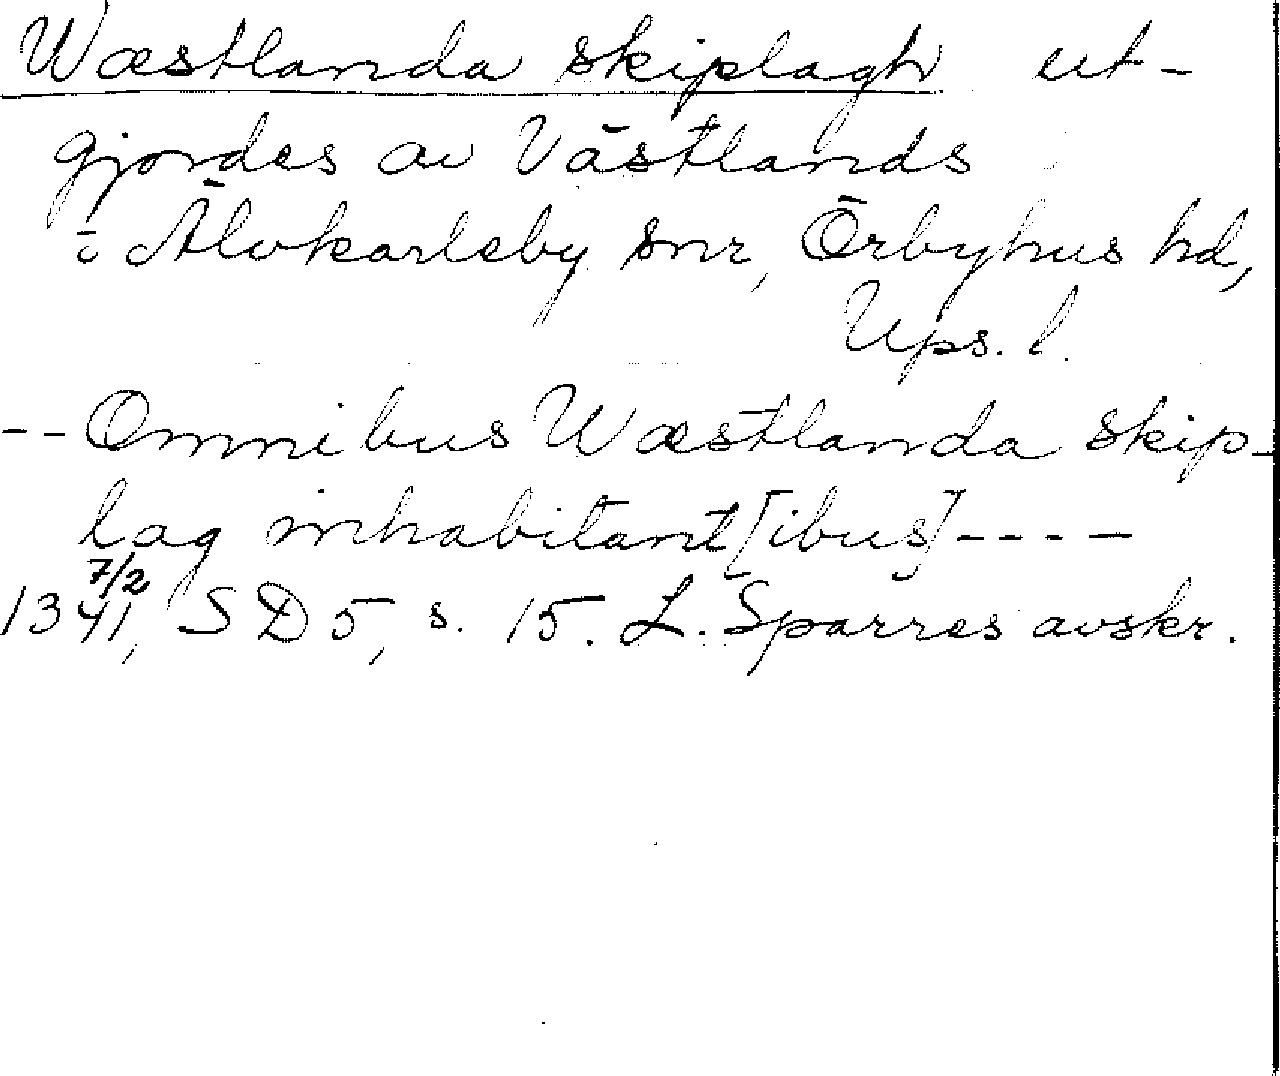 Wæstlanda skiplagh ut-
gjordes av Västlands
ö Älvkarleby snr, Örbyhus hd,
Ups. l.
-- Omnibus Wæstlanda skip-
lag inhabitant[ibus]----
7/2
1341, SD 5, s. 15. L. Sparres avskr.